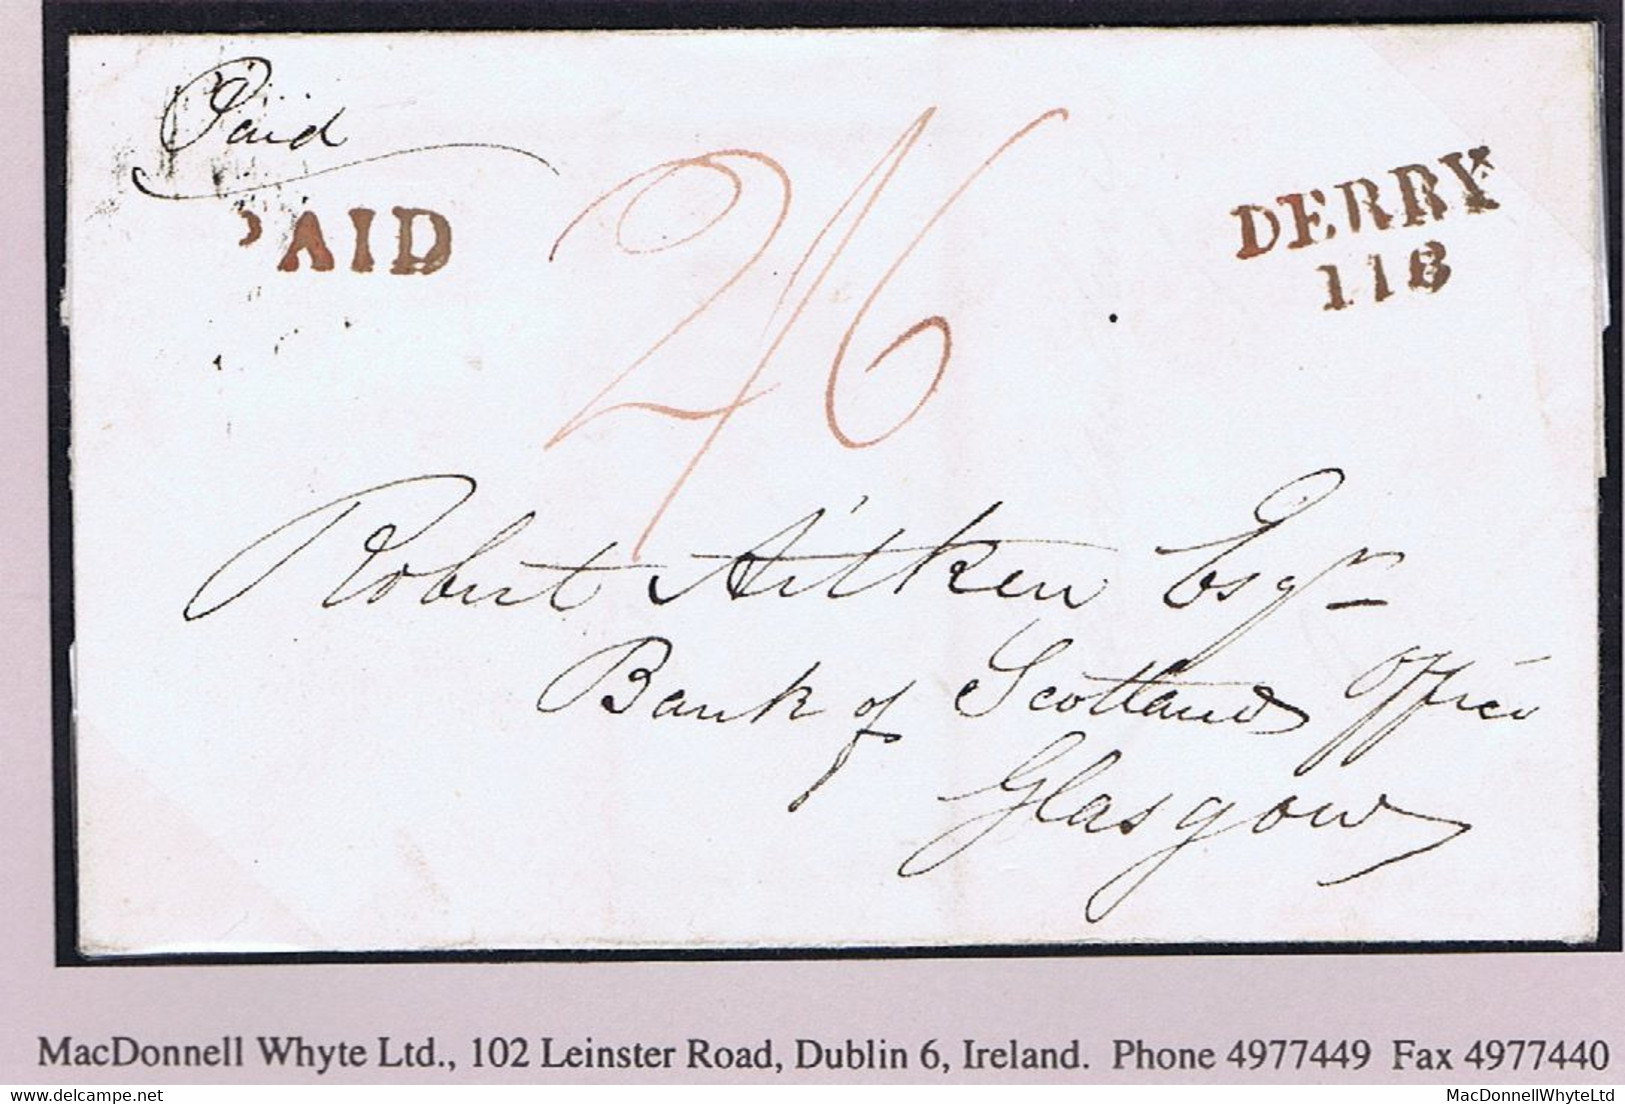 Paid
PAID
2/6
DERRY
118
Robert Aitken Esqr
Bank of Scotland Office
Glasgow
MacDonnell Whyte Ltd., 102 Leinster Road, Dublin 6, Ireland. Phone 4977449 Fax 4977440
delcampe.net
MacDonnellWhyteLtd